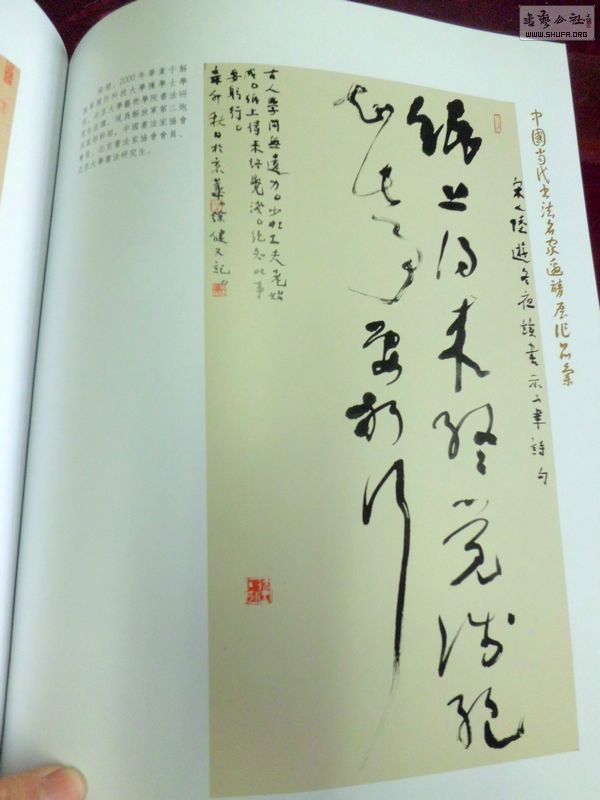 書藝公社
WWW.SHUFA.ORG
中國當代書法名家邀請展作品集
宋人陸遊冬夜讀書示子聿詩句
紙上得来終覺淺絕
知此事要躬行
古人學问無遺力少壯工夫老始
成紙上得来終覺淺絕知此事
要躬行
辛卯秋日於京華徐健又記
徐健，2000年畢業于解
放軍國防科技大學獲學士學
位，北京大學藝術學院書法研
現為解放軍第二炮
兵某部幹部。中國書法家協會
會員，北京書法家協會會員，
北京大學書法研究生。